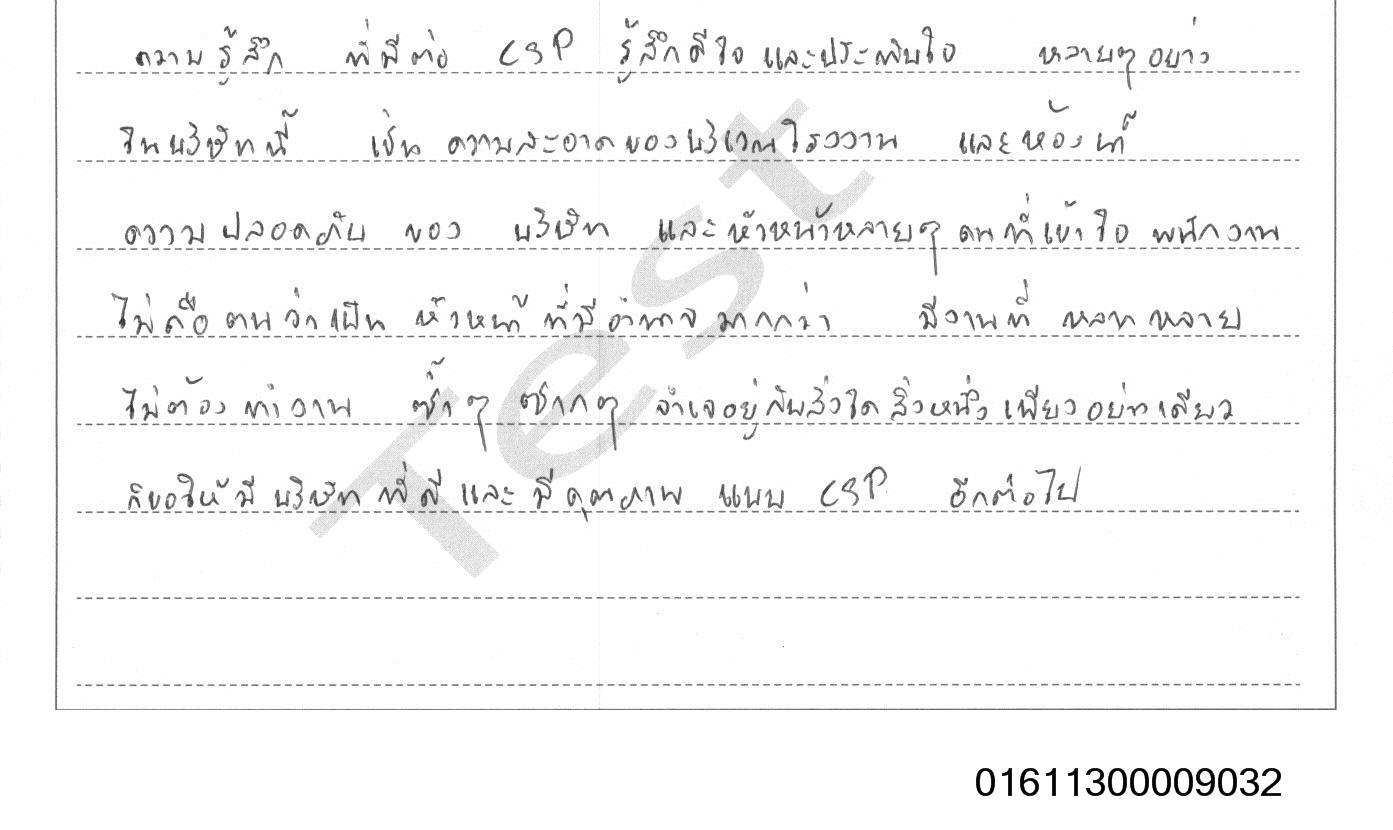 ความรู้สึก ที่มีต่อ CSP รู้สึกดีใจและประทับใจ หลายๆอย่าง
ในบริษัทนี้ เช่น ความสะอาดของบริเวณโรงงาน และห้องน้ำ
ความปลอดภัย ของ บริษัท และหัวหน้าหลายๆ คนที่เข้าใจ พนักงาน
ไม่ถือตนว่าเป็น หัวหน้า ที่มีอำนาจมากกว่า มีงานที่ หลากหลาย
ไม่ต้องทำงาน ซ้ำๆ ซากๆ จำเจอยู่กับสิ่งใด สิ่งหนึ่ง เพียงอย่างเดียว
ก็ขอให้มี บริษัท ที่ดี และ มีคุณภาพ แบบ CSP อีกต่อไป
Test
01611300009032